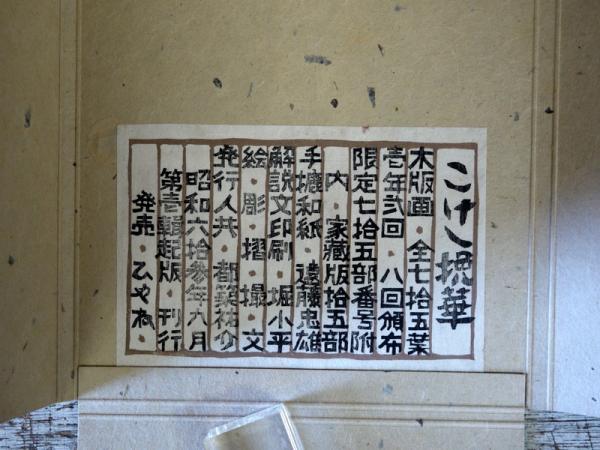 こけし撰華
木版画・全七拾五葉
壱年弐回・八回頒布
限定七拾五部番号附
内・家蔵版拾五部
手漉和紙・遠藤忠雄
解説文印刷・堀小平
絵・彫・摺・撮・文
発行人共・都築祐介
昭和六拾参年九月
第壱輯起版・刊行
発売・ひやね・